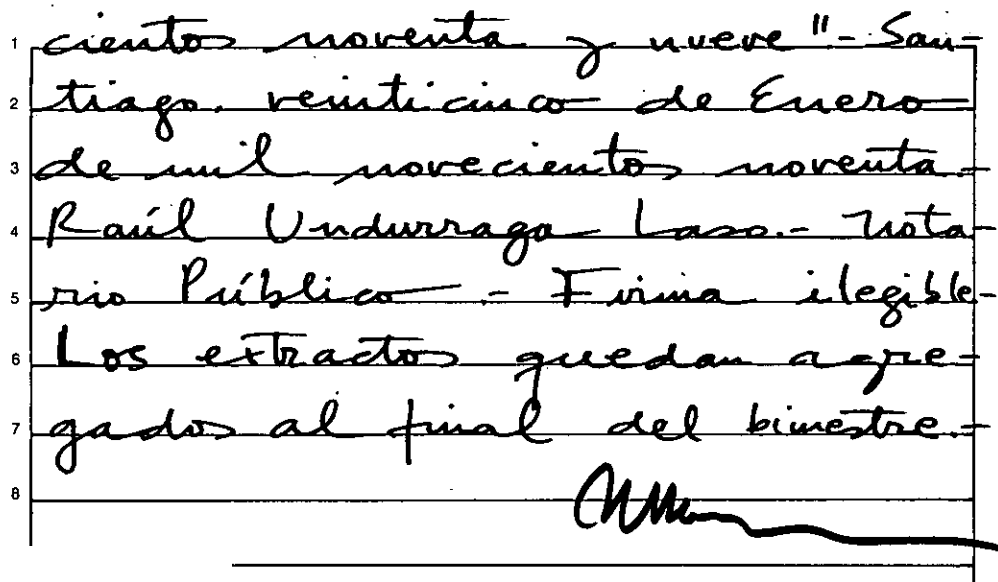 1 cientos noventa y nueve"- San-
2 tiago. veinticinco de Enero
3 de mil novecientos noventa.-
4 Raúl Undurraga Laso.- Nota-
5 rio Público.- Firma ilegible-
6 Los extractos quedan agre-
7 gados al final del bimestre.-
8